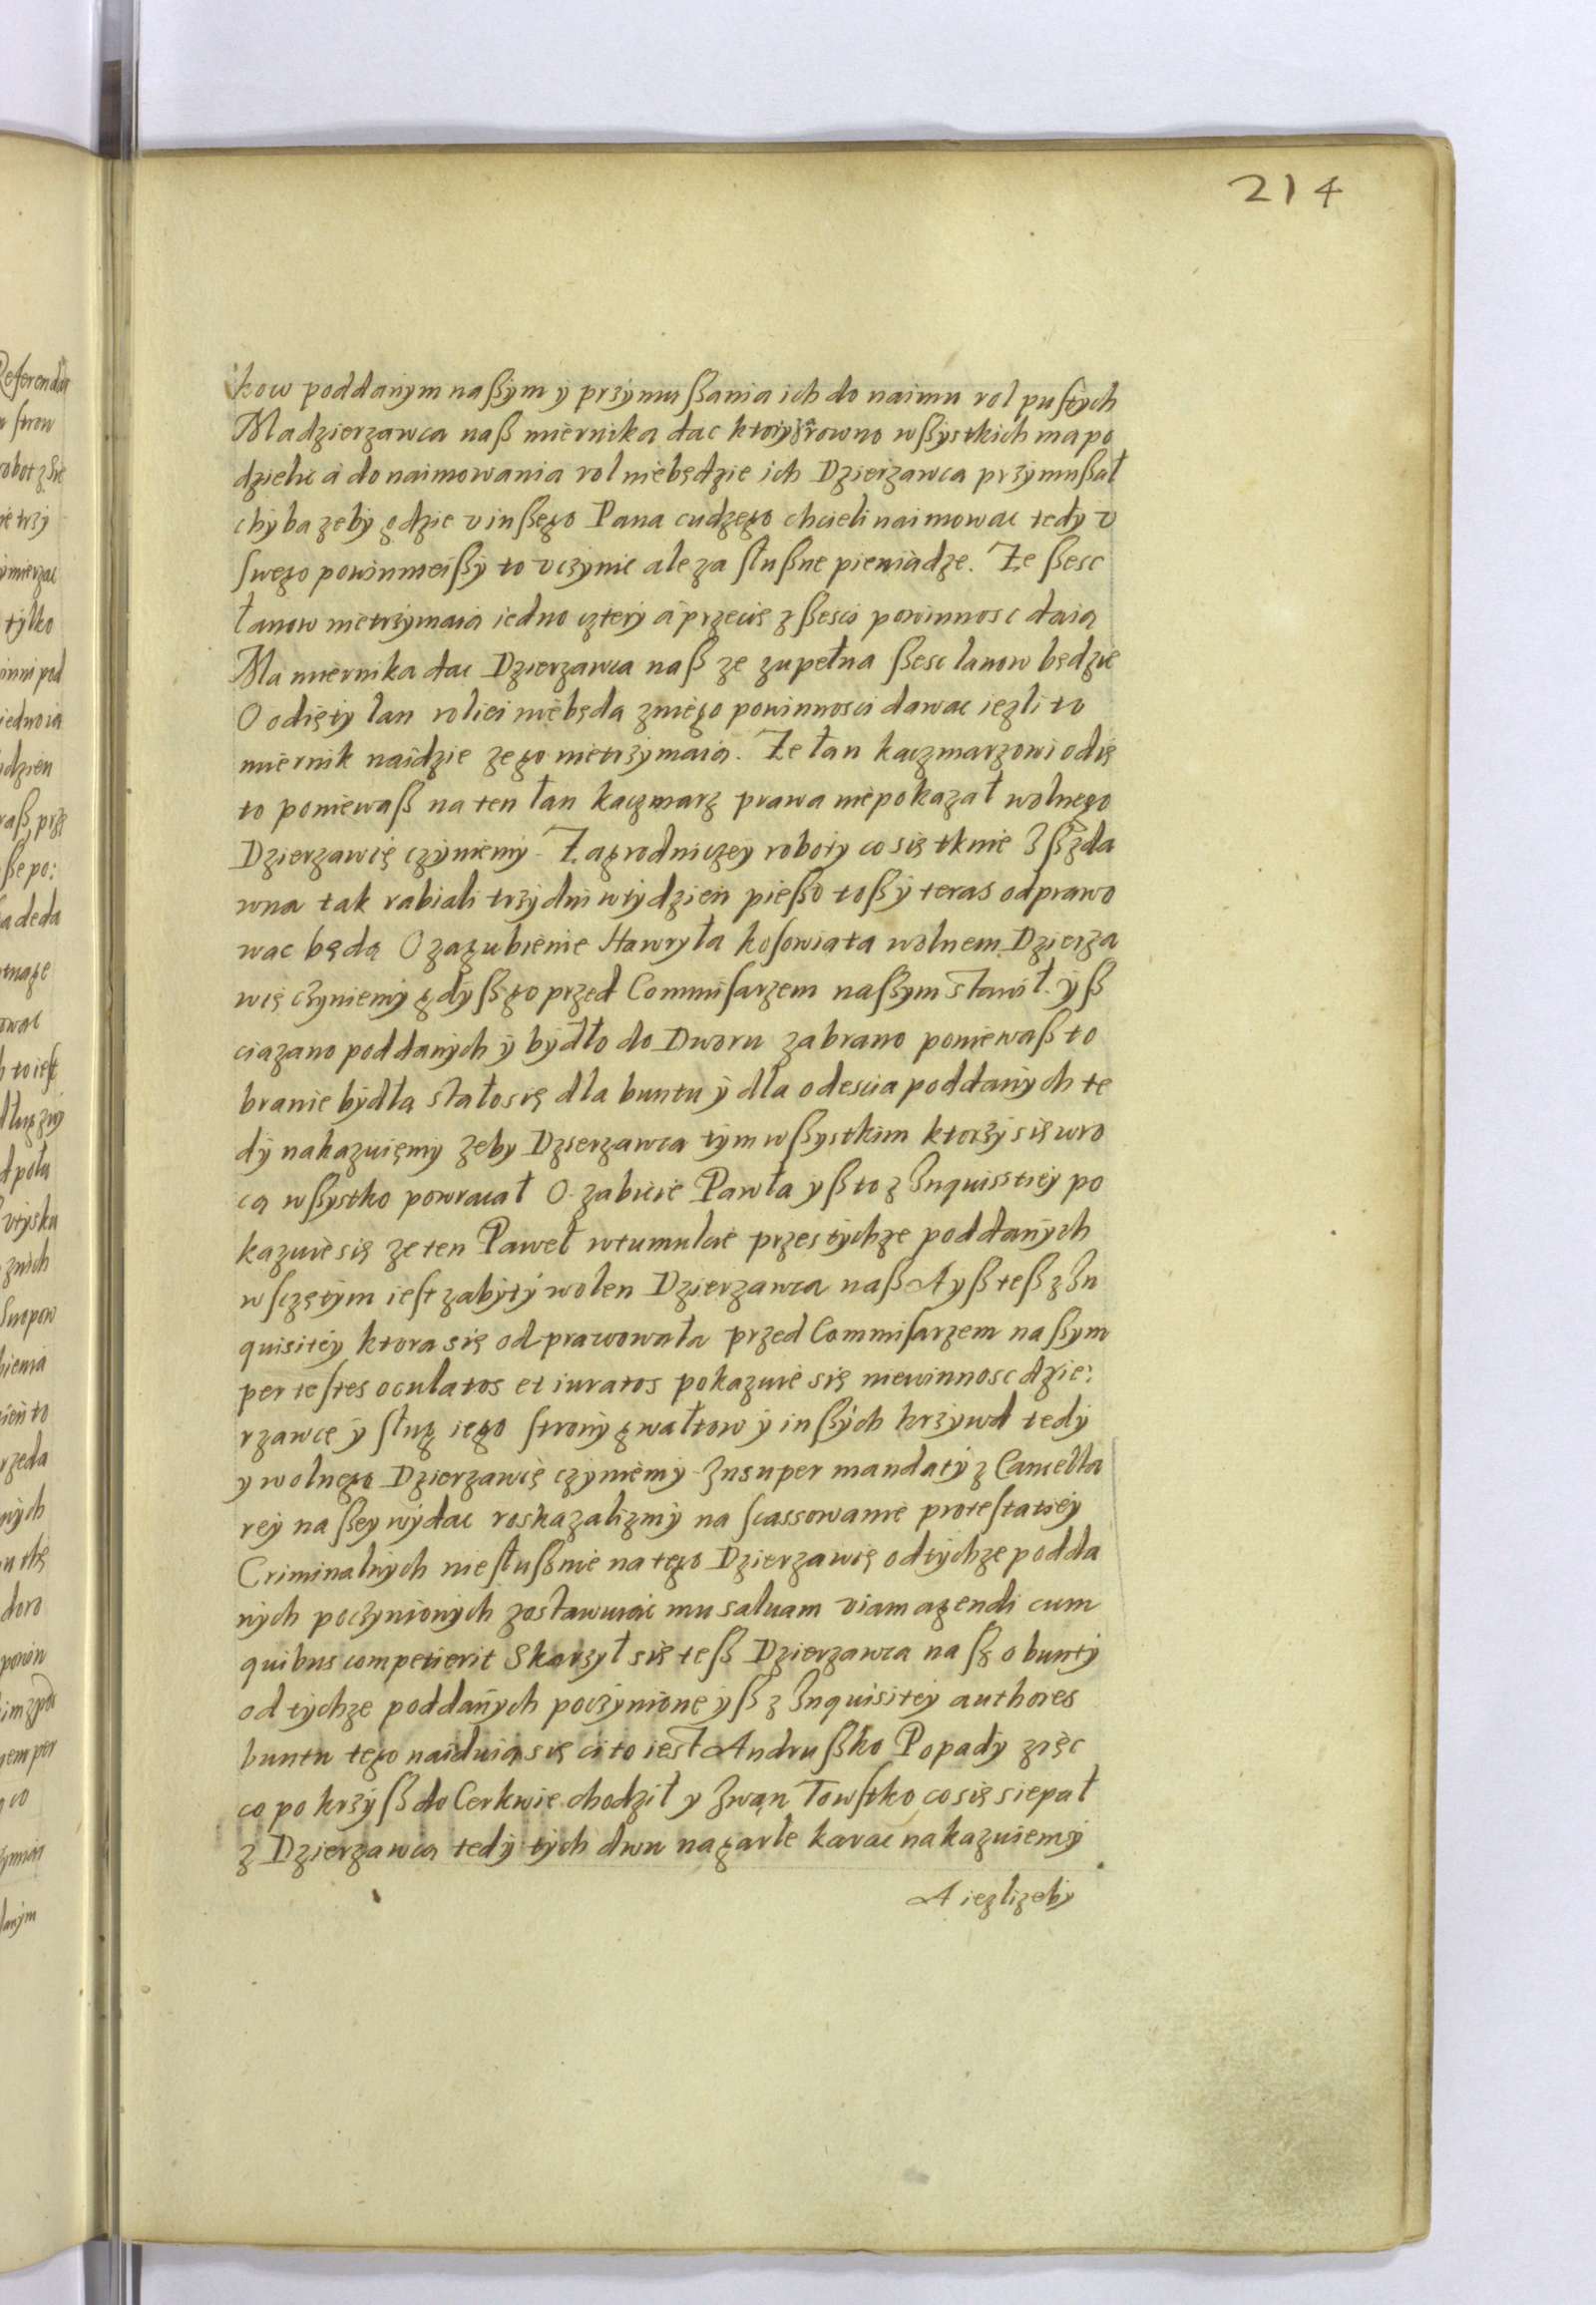 214
kow poddanym naßÿm ÿ przÿmußania ich do naimu rol pustÿch
Ma dzierzawca naß miernika dac ktory zrowno wßÿstkich ma po
dzielic á do naimowania rol niebędzie ich Dzierzawca przÿmußał
chÿba zebÿ gdzie v inßego Pana cudzego chcieli naimowac tedÿ v
swego powinnieißÿ to vczÿnic ale za slußne pieniądze. Ze ßesc
łanow nietrzÿmaią iedno czterÿ á przecię z ßesci powinnosc daią
Ma miernika dac Dzierzawca naß ze zupełna ßesc lanow będzie
O odięty lan roliei niebęda zniego powinnosci dawac iezli to
miernik naidzie ze go nietrzÿmaią. Ze łan kaczmarzowi odię
to poniewaß na ten łan kaczmarz prawa niepokazał wolnego
Dzierzawcę czÿniemÿ. Zagrodniczey robotÿ co się tknie Iß zda
wna tak rabiali trzÿ dni wtÿdzień pießo toßÿ teras odprawo
wac będą O zagubienie Hawryła kosowiata wolnem Dzierza
wcę czÿniemÿ gdÿß go przed Commisarzem naßÿm stawił. ÿß
ciązano poddanÿch ÿ bÿdło do Dworu zabrano poniewaß to
branie bÿdła stało się dla buntu ÿ dla odescia poddanÿch te
dÿ nakazuięmy zeby Dzierzawca tÿm wßÿstkim ktorzÿ się wro
cą wßÿstko powracał O zabicie Pawła yß to z Inquisitieÿ po
kazuie się ze ten Paweł wtumulcie przes tÿchze poddanÿch
wsczętÿm iest zabÿtÿ wolen Dzierzawca naß A yß teß z In
quisitieÿ ktora się odprawowała przed Commisarzem naßym
per testes oculatos et iuratos pokazuie się niewinnosc dzie:
rzawcę ÿ sług iego stronÿ gwałtow ÿ inßÿch krzÿwd tedÿ
y wolnego Dzierzawcę czÿniemÿ. Insuper mandatÿ z Cancella
reÿ naßey wÿdac roskazalizmÿ na scassowanie protestatieÿ
Criminalnÿch niesłußnie na tego Dzierzawcę od tÿchze podda
nÿch poczÿnionÿch zostawuiąc mu saluam viam agendi cum
quibus competierit Skarzÿł się teß Dzierzawca nasz o buntÿ
od tÿchze poddanÿch poczÿnione ÿß z Inquisitieÿ authores
buntu tego naiduią się ci to iest Andrußko Popadÿ zięc
co po krzÿß do Cerkwie chodził y Iwan Towstko co się siepał
z Dzierzawcą tedÿ tÿch dwu na garle karac nakazuiemÿ
A iezlizeby